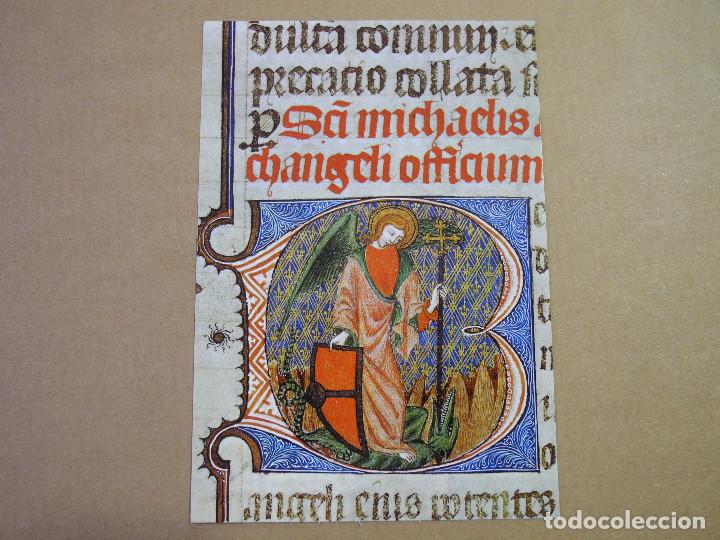 dulta comnium. c
precatio collata
p Sci michaelis a
changeli officium
B
angeli eius potentes
todocoleccion